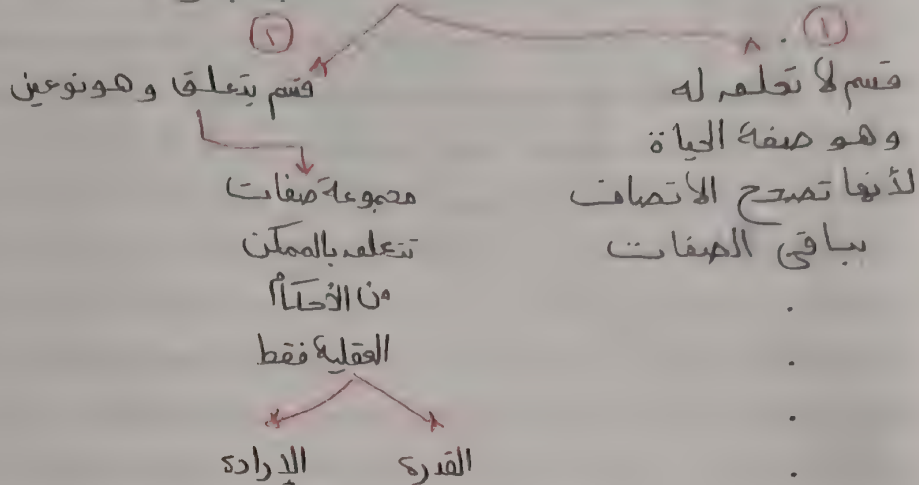 ١
قسم لا تعلق له
وهو صفة الحياة
لأنها تصحح الاتصاف
بباقي الصفات
١
قسم يتعلق وهو نوعين
مجموعة صفات
تتعلق بالممكن
من الأحكام
العقلية فقط
القدرة
الإرادة